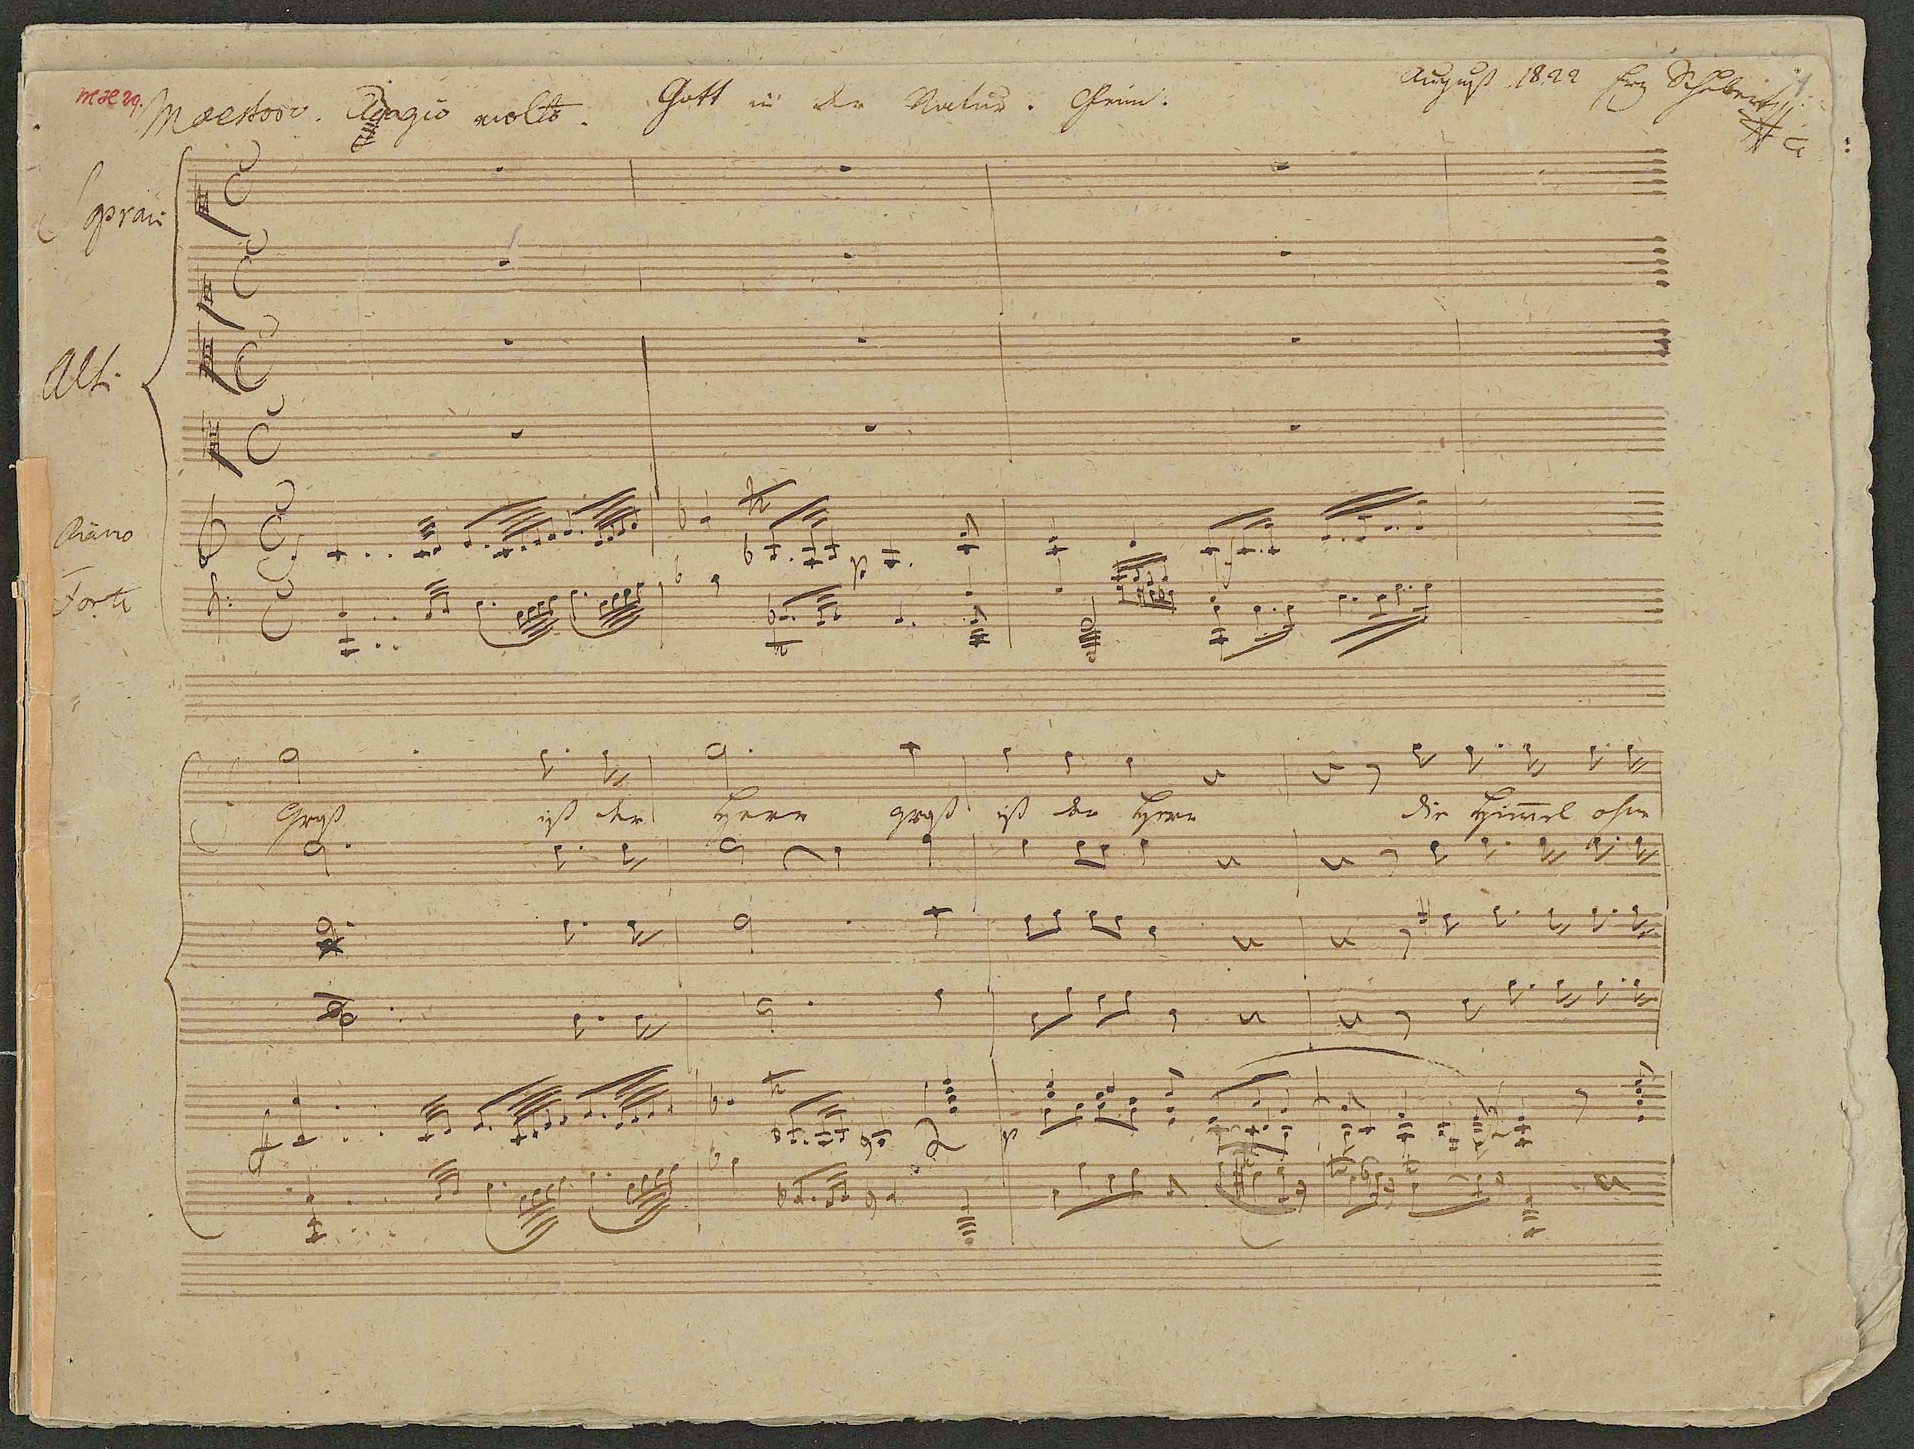 Maestoso. Adagio molto. Gott in der Natur. August 1822 Frz Schubert
Soprani
Alti
Piano
Forte
Groß ist der Herr groß ist der Herr die Himmel ohne